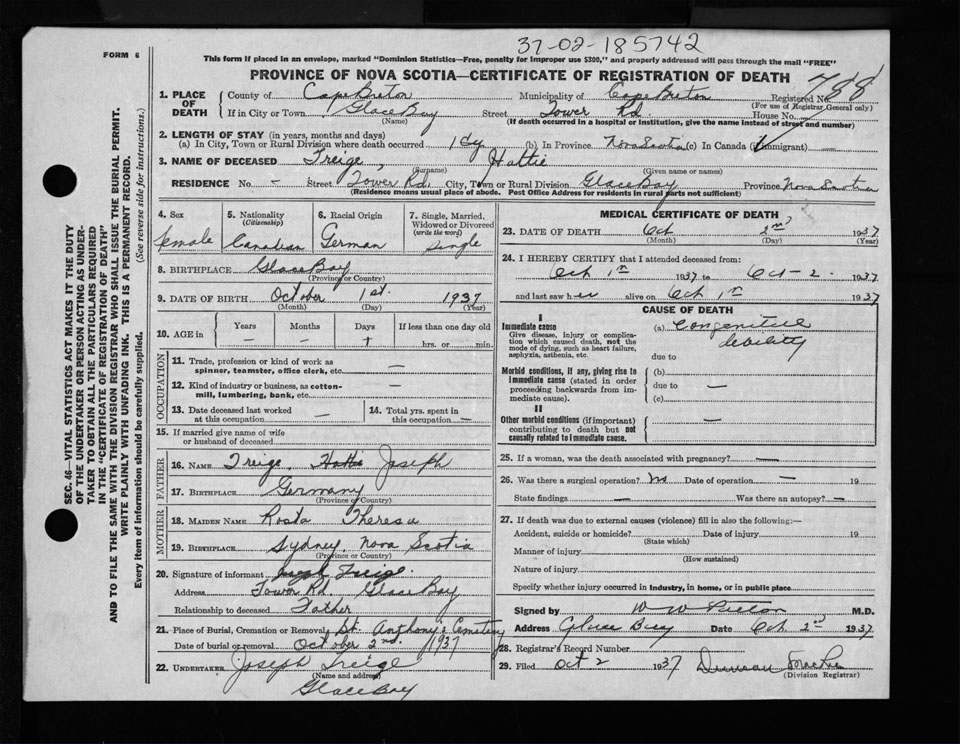 37-02-185742
FORM 6
This form if placed in an envelope, marked "Dominion Statistics—Free, penalty for improper use $300," and properly addressed will pass through the mail "FREE"
PROVINCE OF NOVA SCOTIA—CERTIFICATE OF REGISTRATION OF DEATH
788
1. PLACE OF DEATH
County of Cape Breton Municipality of Cape Breton Registered No.
(For use of Registrar General only)
If in City or Town Glace Bay Street Tower Rd House No.
(Name) (If death occurred in a hospital or institution, give the name instead of street and number)
2. LENGTH OF STAY (in years, months and days)
(a) In City, Town or Rural Division where death occurred 1 dy (b) In Province Nova Scotia (c) In Canada (if immigrant) —
3. NAME OF DECEASED Treige, Hattie
(Surname) (Given name or names)
RESIDENCE No — Street Tower Rd. City, Town or Rural Division Glace Bay Province Nova Scotia
(Residence means usual place of abode. Post Office Address for residents in rural parts not sufficient)
4. Sex female
5. Nationality (Citizenship) Canadian
6. Racial Origin German
7. Single, Married, Widowed or Divorced (write the word) Single
8. BIRTHPLACE Glace Bay
(Province or Country)
9. DATE OF BIRTH October 1st. 1937
(Month) (Day) (Year)
10. AGE in Years Months Days If less than one day old
— — + hrs. or min.
OCCUPATION
11. Trade, profession or kind of work as spinner, teamster, office clerk, etc. —
12. Kind of industry or business, as cotton-mill, lumbering, bank, etc. —
13. Date deceased last worked at this occupation —
14. Total yrs. spent in this occupation —
15. If married give name of wife or husband of deceased
FATHER
16. NAME Treige, Hattie Joseph
17. BIRTHPLACE Germany
(Province or Country)
MOTHER
18. MAIDEN NAME Rosta Theresa
19. BIRTHPLACE Sydney, Nova Scotia
(Province or Country)
20. Signature of informant Joseph Treige.
Address Tower Rd. Glace Bay
Relationship to deceased Father
21. Place of Burial, Cremation or Removal St. Anthony's Cemetery
Date of burial or removal October 2nd. 1937
22. UNDERTAKER Joseph Treige
(Name and address)
Glace Bay
MEDICAL CERTIFICATE OF DEATH
23. DATE OF DEATH Oct 2nd 1937
(Month) (Day) (Year)
24. I HEREBY CERTIFY that I attended deceased from:
Oct 1st 1937 to Oct - 2. 1937
and last saw her alive on Oct 1st 1937
CAUSE OF DEATH
I
Immediate cause
Give disease, injury or complication which caused death, not the mode of dying, such as heart failure, asphyxia, asthenia, etc.
(a) Congenital debility
due to
Morbid conditions, if any, giving rise to immediate cause (stated in order proceeding backwards from immediate cause).
(b)
due to —
(c)
II
Other morbid conditions (if important) contributing to death but not causally related to immediate cause.
—
25. If a woman, was the death associated with pregnancy? —
26. Was there a surgical operation? no Date of operation — 19
State findings — Was there an autopsy? —
27. If death was due to external causes (violence) fill in also the following:—
Accident, suicide or homicide? Date of injury 19
(State which)
Manner of injury
(How sustained)
Nature of injury
Specify whether injury occurred in industry, in home, or in public place
Signed by W W M.D.
Address Glace Bay Date Oct 2nd 1937
28. Registrar's Record Number
29. Filed Oct 2 1937 Duncan
(Division Registrar)
SEC. 46—VITAL STATISTICS ACT MAKES IT THE DUTY
OF THE UNDERTAKER OR PERSON ACTING AS UNDER-
TAKER TO OBTAIN ALL THE PARTICULARS REQUIRED
IN THE "CERTIFICATE OF REGISTRATION OF DEATH"
AND TO FILE THE SAME WITH THE DIVISION REGISTRAR WHO SHALL ISSUE THE BURIAL PERMIT.
WRITE PLAINLY WITH UNFADING INK. THIS IS A PERMANENT RECORD.
Every item of information should be carefully supplied. (See reverse side for instructions.)